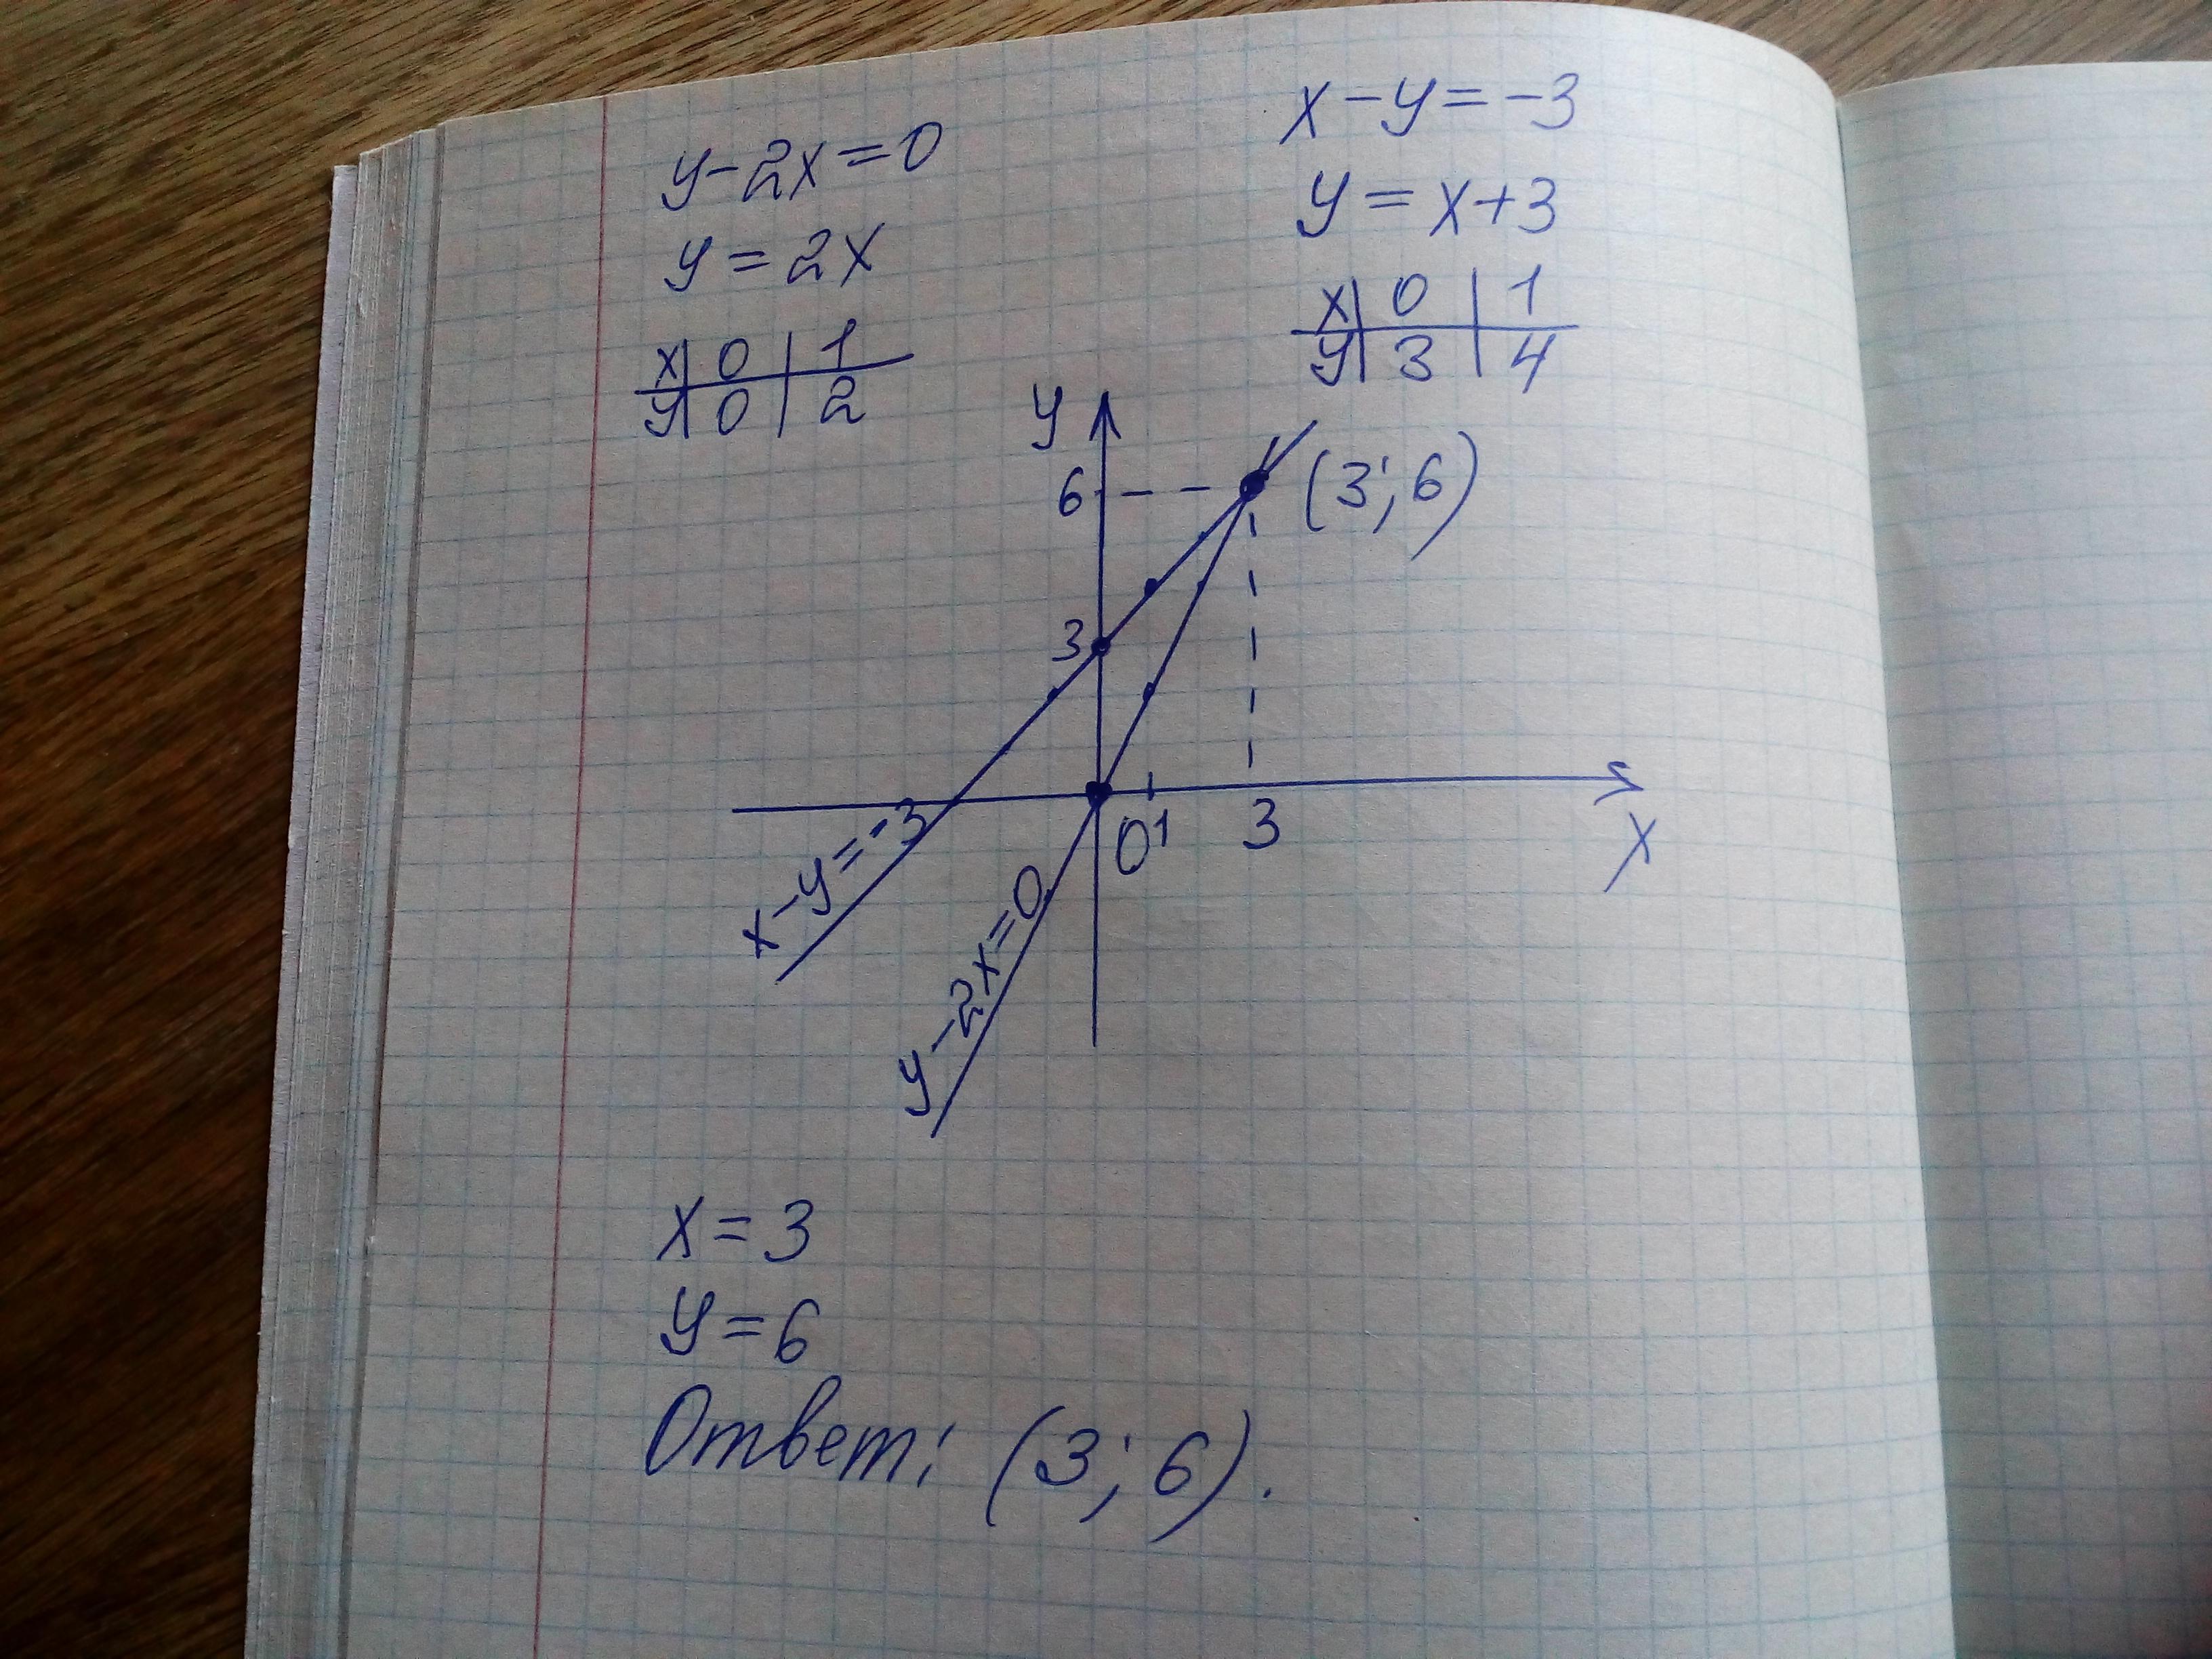 y-2x=0
y=2x
x|0|1
y|0|2
x-y=-3
y=x+3
x|0|1
y|3|4
y
6
(3;6)
3
0 1 3
x
x-y=-3
y-2x=0
x=3
y=6
Ответ: (3;6).